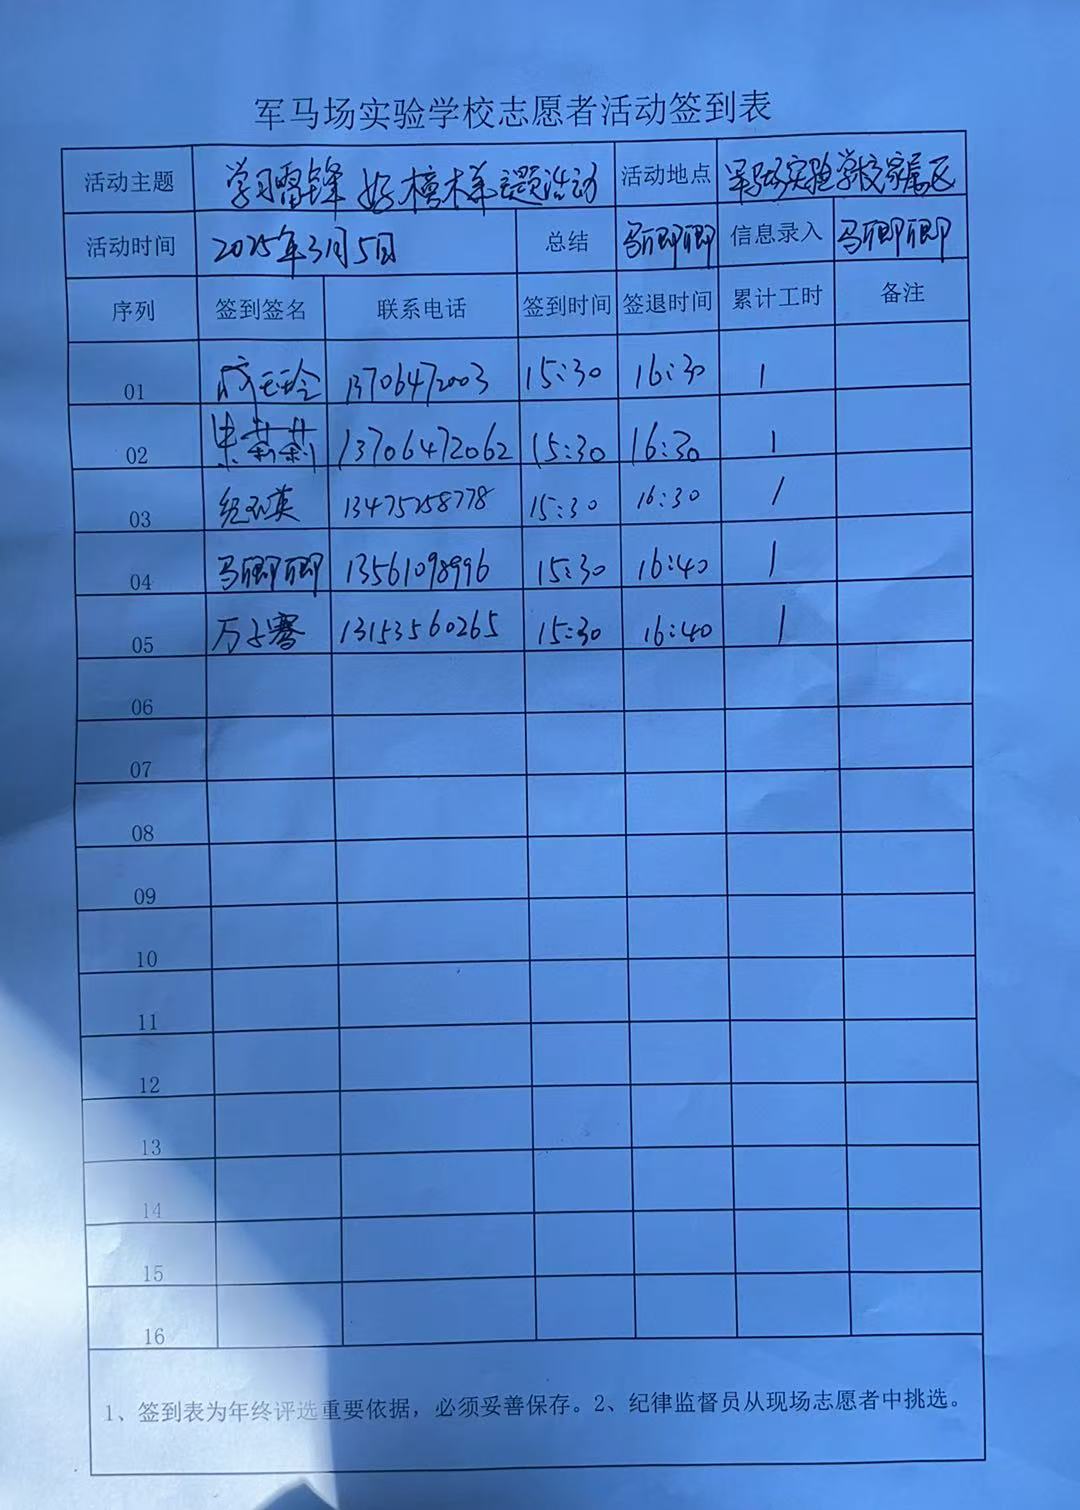 军马场实验学校志愿者活动签到表
活动主题 学习雷锋 好榜样主题活动 活动地点 军马场实验学校家属区
活动时间 2025年3月5日 总结 马卿卿 信息录入 马卿卿
序列 签到签名 联系电话 签到时间 签退时间 累计工时 备注
01 13706472003 15:30 16:30 1
02 朱莉莉 13706472062 15:30 16:30 1
03 13475258778 15:30 16:30 1
04 马卿卿 13561098996 15:30 16:40 1
05 万子骞 13153560265 15:30 16:40 1
06
07
08
09
10
11
12
13
14
15
16
1、签到表为年终评选重要依据，必须妥善保存。2、纪律监督员从现场志愿者中挑选。